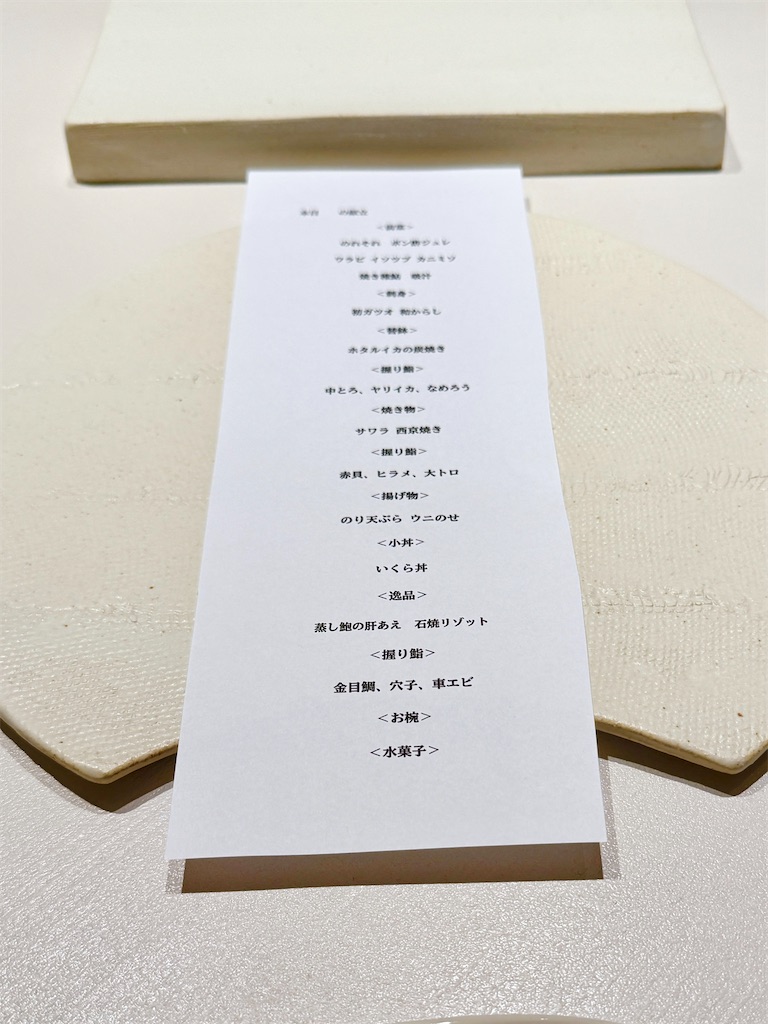 本日 の献立
＜前菜＞
のれそれ ポン酢ジュレ
ワラビ イソツブ カニミソ
焼き椎茸
＜刺身＞
初ガツオ 和からし
＜替鉢＞
ホタルイカの炭焼き
＜握り鮨＞
中とろ、ヤリイカ、なめろう
＜焼き物＞
サワラ 西京焼き
＜握り鮨＞
赤貝、ヒラメ、大トロ
＜揚げ物＞
のり天ぷら ウニのせ
＜小丼＞
いくら丼
＜逸品＞
蒸し鮑の肝あえ 石焼リゾット
＜握り鮨＞
金目鯛、穴子、車エビ
＜お椀＞
＜水菓子＞